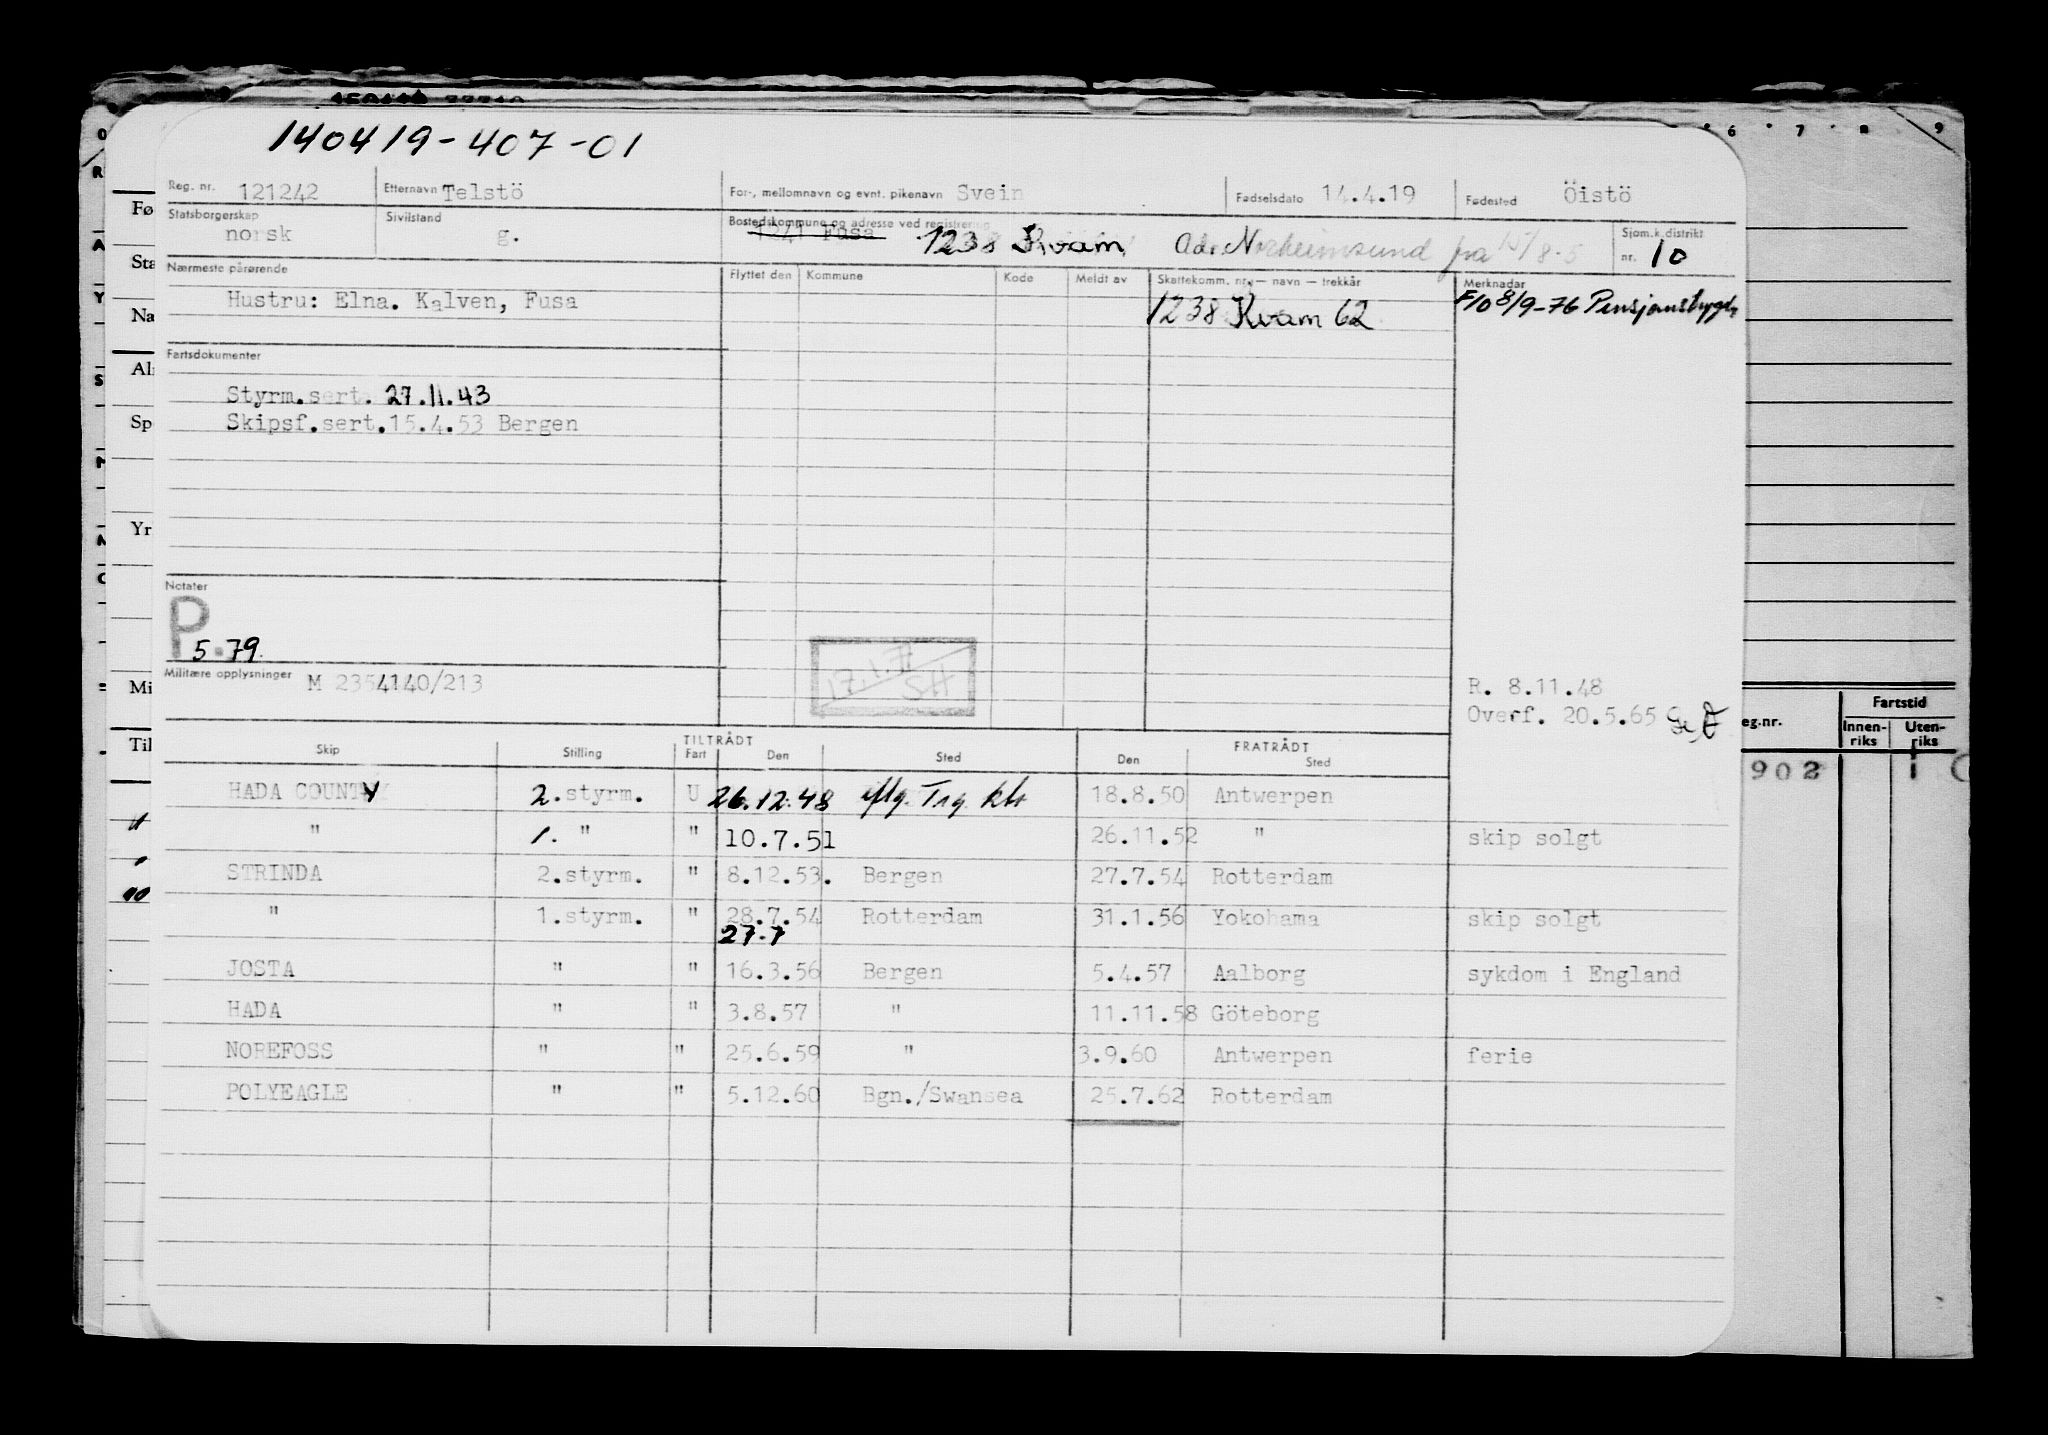 140419-407-01
Reg. nr. 121242 Etternavn Telstö For-, mellomnavn og evnt. pikenavn Svein Fødselsdato 14.4.19 Fødested Öistö
Statsborgerskap norsk Sivilstand g. Bostedskommune og adresse ved registrering 1241 Fusa 1238 Kvam Adr. Norheimsund fra 15/8-5 Sjøm.k.distrikt nr. 10
Nærmeste pårørende Flyttet den Kommune Kode Meldt av Skattekomm. nr. — navn — trekkår Merknader
Hustru: Elna. Kalven, Fusa 1238 Kvam 62 F10 8/9-76 Pensjonstrygd
Fartsdokumenter
Styrm.sert. 27.11.43
Skipsf.sert.15.4.53 Bergen
Notater
P
5.79.
17.1.7 SH
Militære opplysninger M 2354140/213
R. 8.11.48
Overf. 20.5.65
TILTRÅDT FRATRÅDT
Skip Stilling Fart Den Sted Den Sted
HADA COUNTY 2.styrm. U 26.12.48 18.8.50 Antwerpen
" 1. " " 10.7.51 26.11.52 " skip solgt
STRINDA 2.styrm. " 8.12.53. Bergen 27.7.54 Rotterdam
" 1.styrm. " 28.7.54 Rotterdam 31.1.56 Yokohama skip solgt
27.7
JOSTA " " 16.3.56 Bergen 5.4.57 Aalborg sykdom i England
HADA " " 3.8.57 " 11.11.58 Göteborg
NOREFOSS " " 25.6.59 " 3.9.60 Antwerpen ferie
POLYEAGLE " " 5.12.60 Bgn./Swansea 25.7.62 Rotterdam
6 7 8 9
Fø
Sta
Na
Al
Sp
Yr
Mi
Til
eg.nr. Fartstid
Innen-riks Uten-riks
902 1